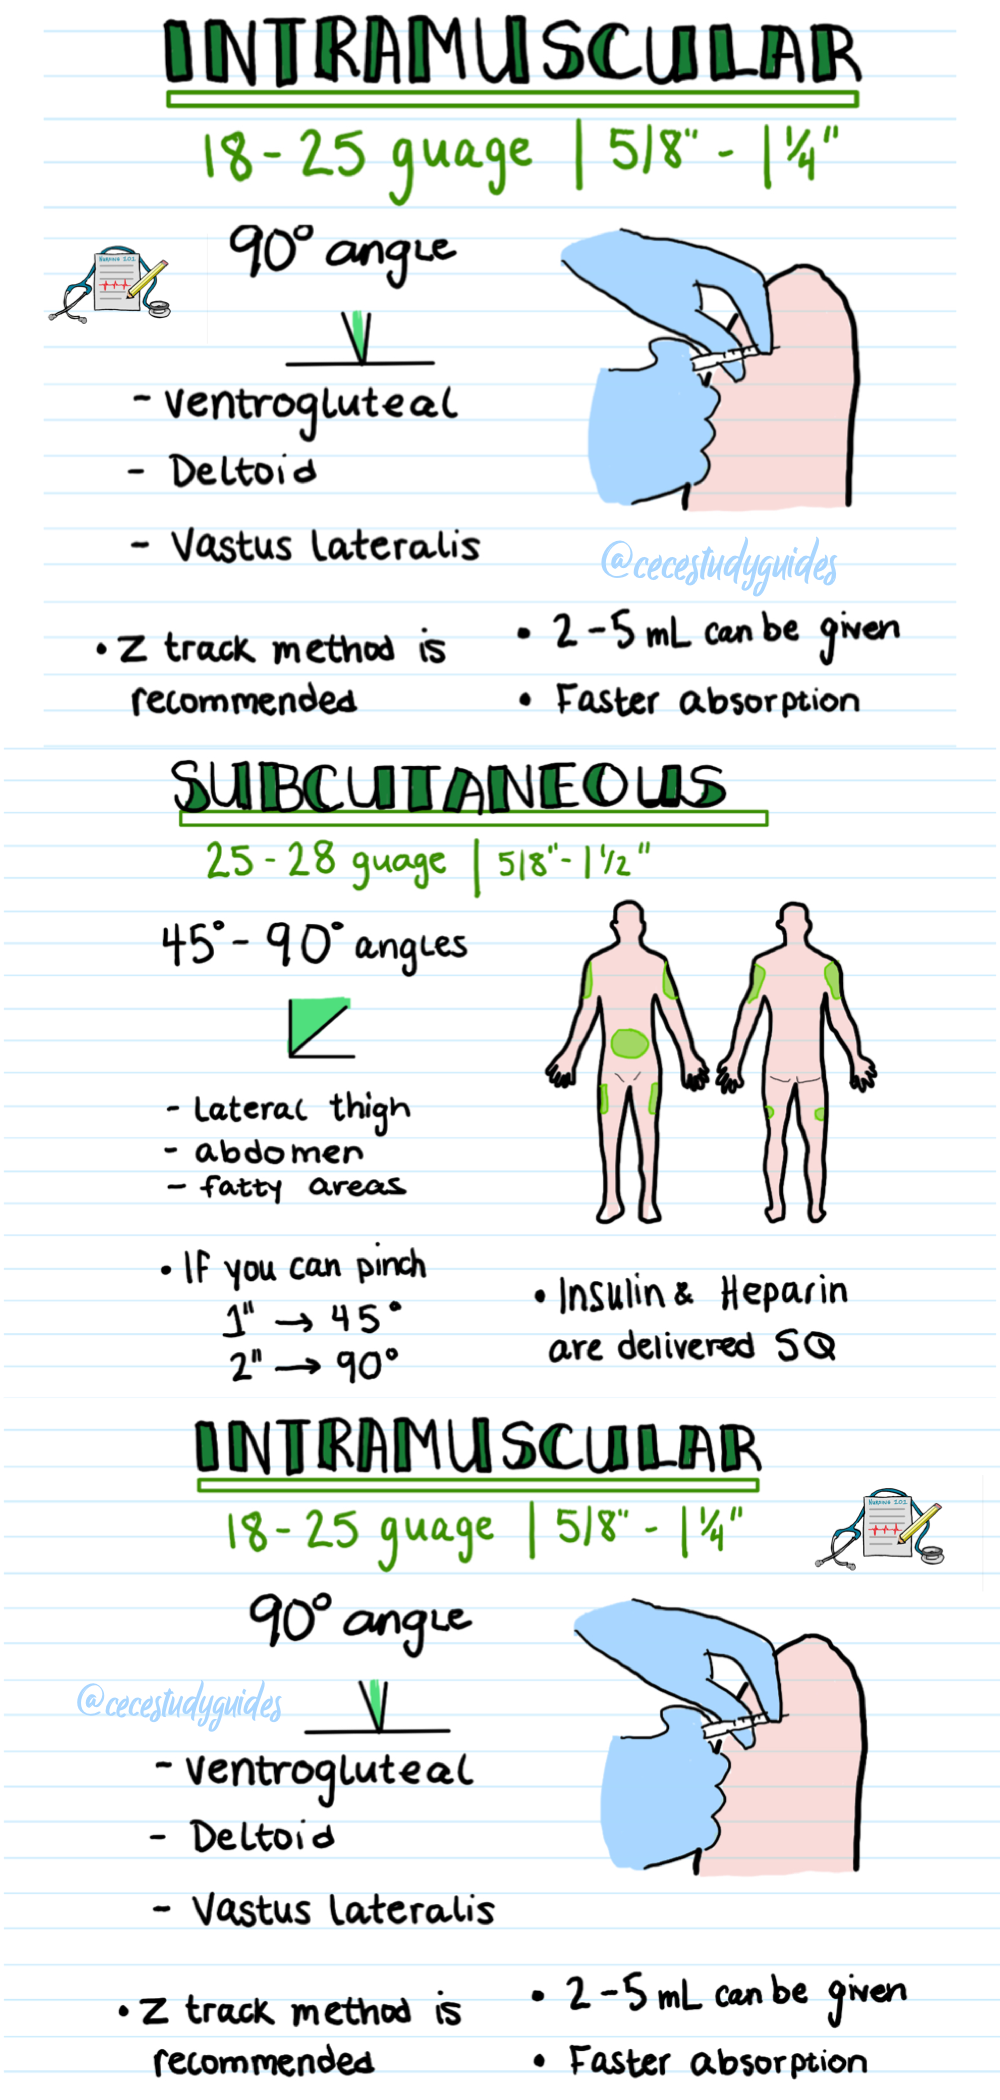 INTRAMUSCULAR
18-25 guage | 5/8" - 1 1/4"
90° angle
NURSING 101
- Ventrogluteal
- Deltoid
- Vastus lateralis
@cecestudyguides
• Z track method is
recommended
• 2-5 mL can be given
• Faster absorption
SUBCUTANEOUS
25-28 guage | 5/8"- 1 1/2"
45°- 90° angles
- Lateral thigh
- abdomen
- fatty areas
• If you can pinch
1" → 45°
2" → 90°
• Insulin & Heparin
are delivered SQ
INTRAMUSCULAR
18-25 guage | 5/8" - 1 1/4"
NURSING 101
90° angle
@cecestudyguides
- Ventrogluteal
- Deltoid
- Vastus lateralis
• Z track method is
recommended
• 2-5 mL can be given
• Faster absorption